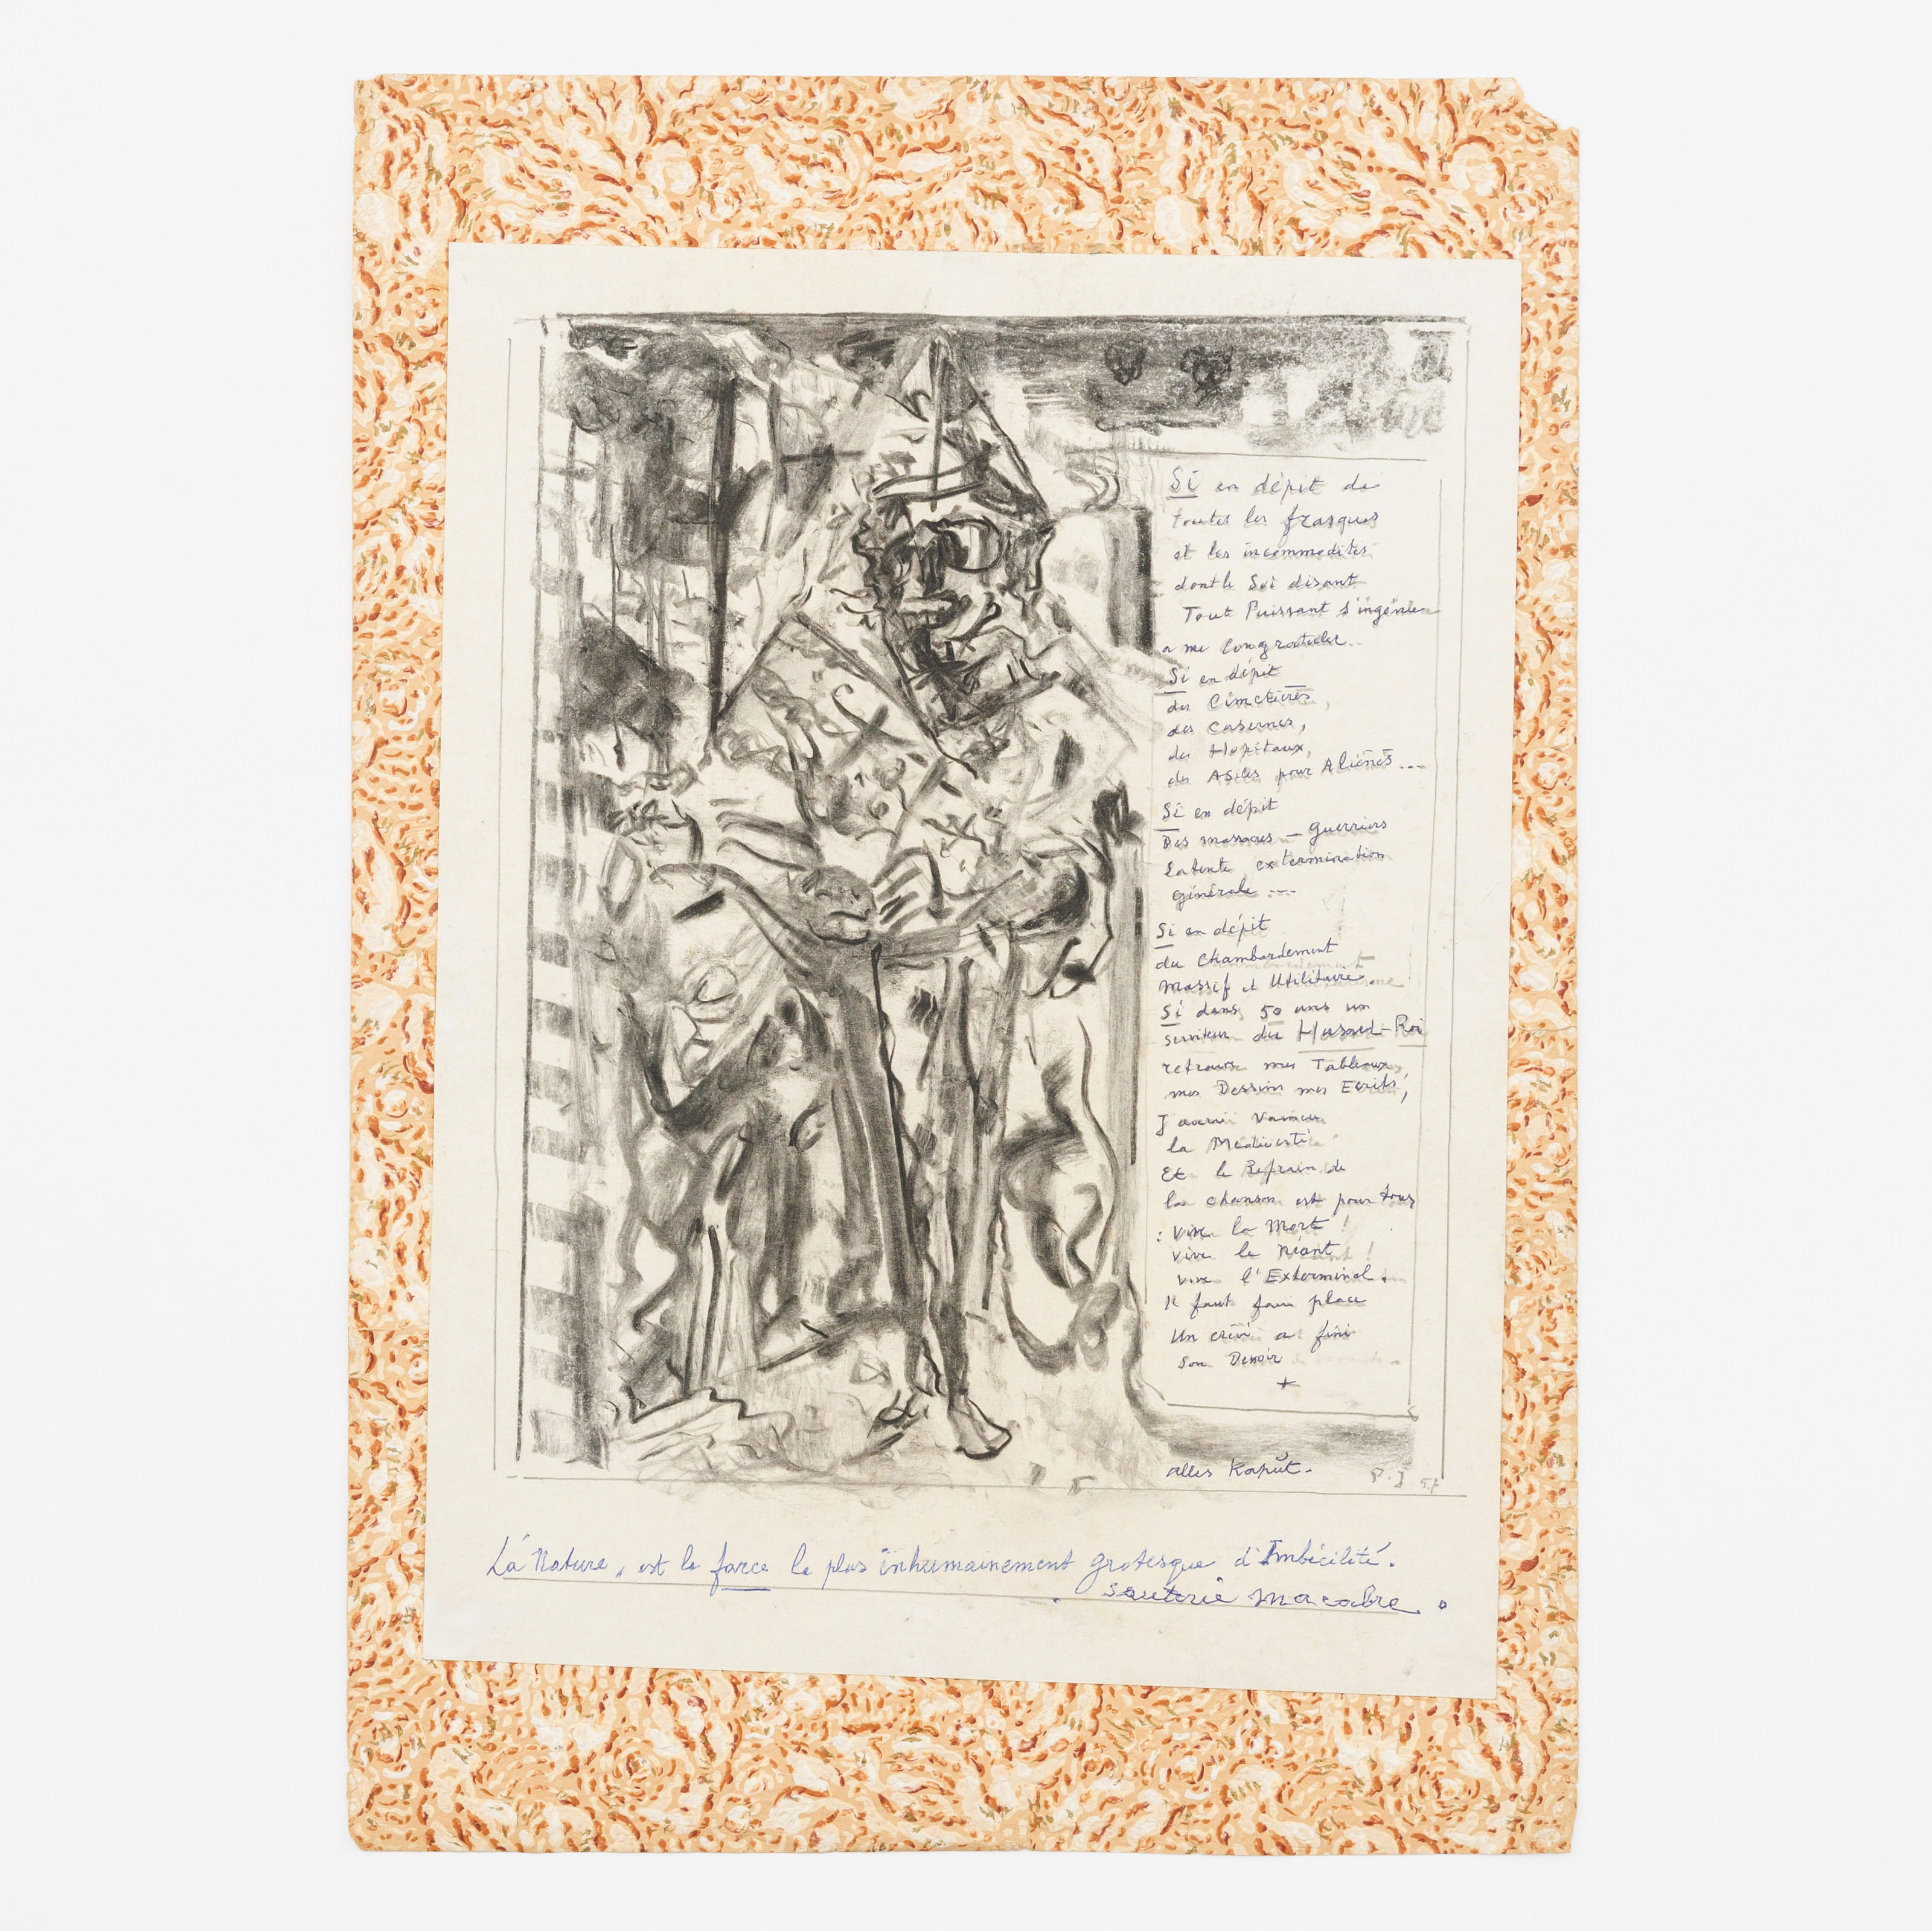 Si en dépit de
toutes les frasques
et les incommodités
dont le Soi disant
Tout Puissant s'ingénie
a me Congratuler..
Si en dépit
des Cimetières,
des Casernes,
des Hopitaux,
des Asiles pour Aliénés...
Si en dépit
Des massacres – guerriers
Latente extermination
générale ---
Si en dépit
du Chambardement
Massif et Utilitaire.
Si dans 50 ans un
serviteur du Hasard-Roi
retrouve mes Tableaux,
mes Dessins mes Ecrits,
J'aurai Vaincu
la Médiocrité
Et le Refrain de
la chanson est pour tous
: Vive la Mort !
Vive le Néant !
Vive l'Exterminal.
Il faut faire place
Un crévé a fini
Son Devoir
alles Kapŭt.
La Nature, est la farce la plus inhumainement grotesque d'Imbécilité.
macabre